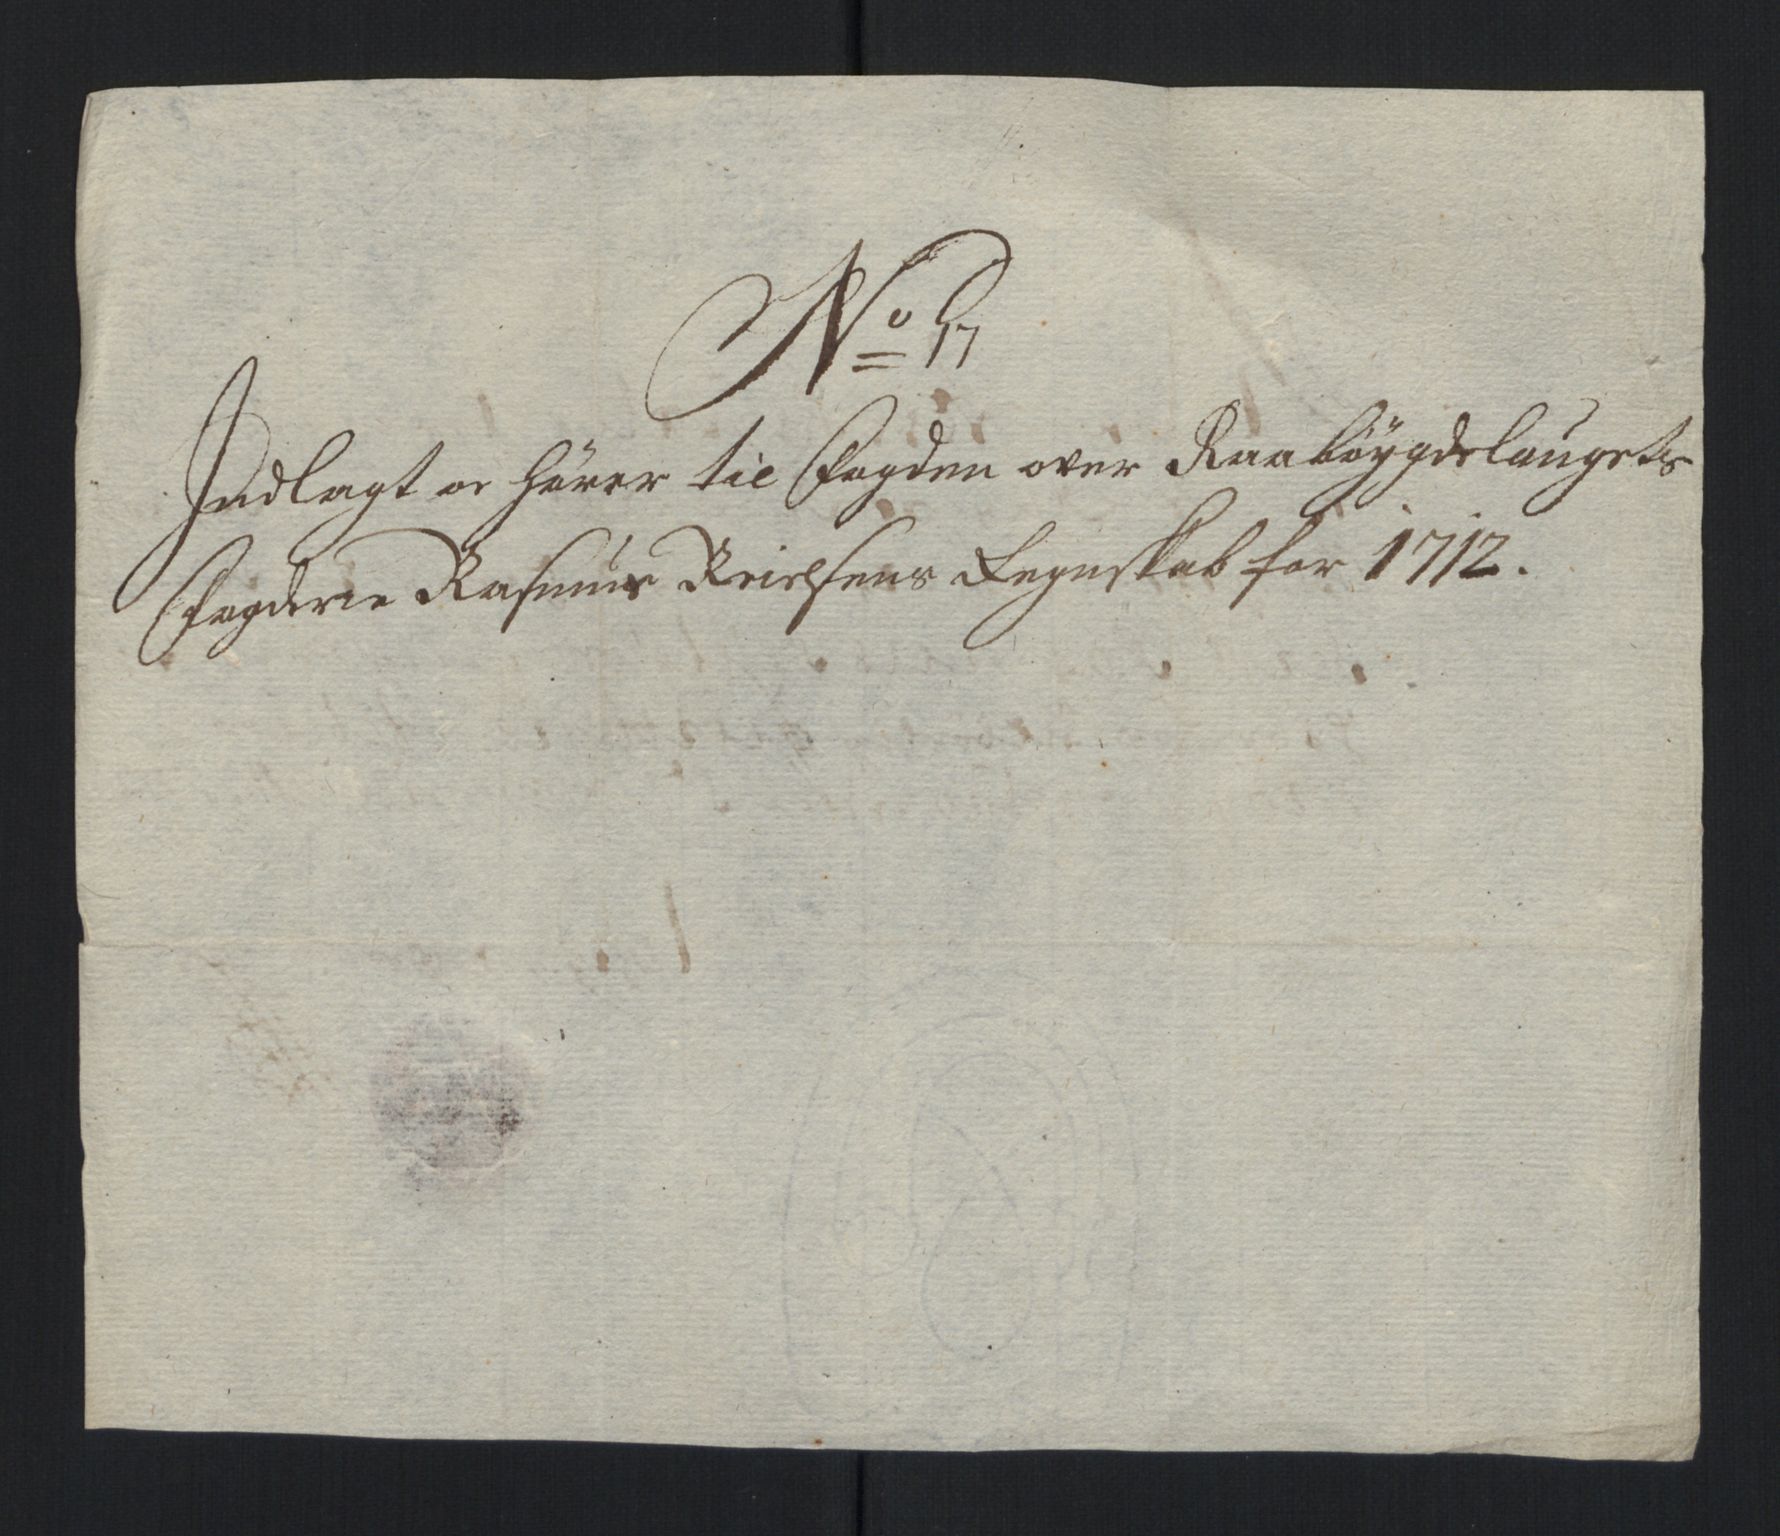 No 17
Indlagt oc hörer til Fogden over Raabÿgdelaugets
Fogderie Rasmus Reiersens Regnskab for 1712.